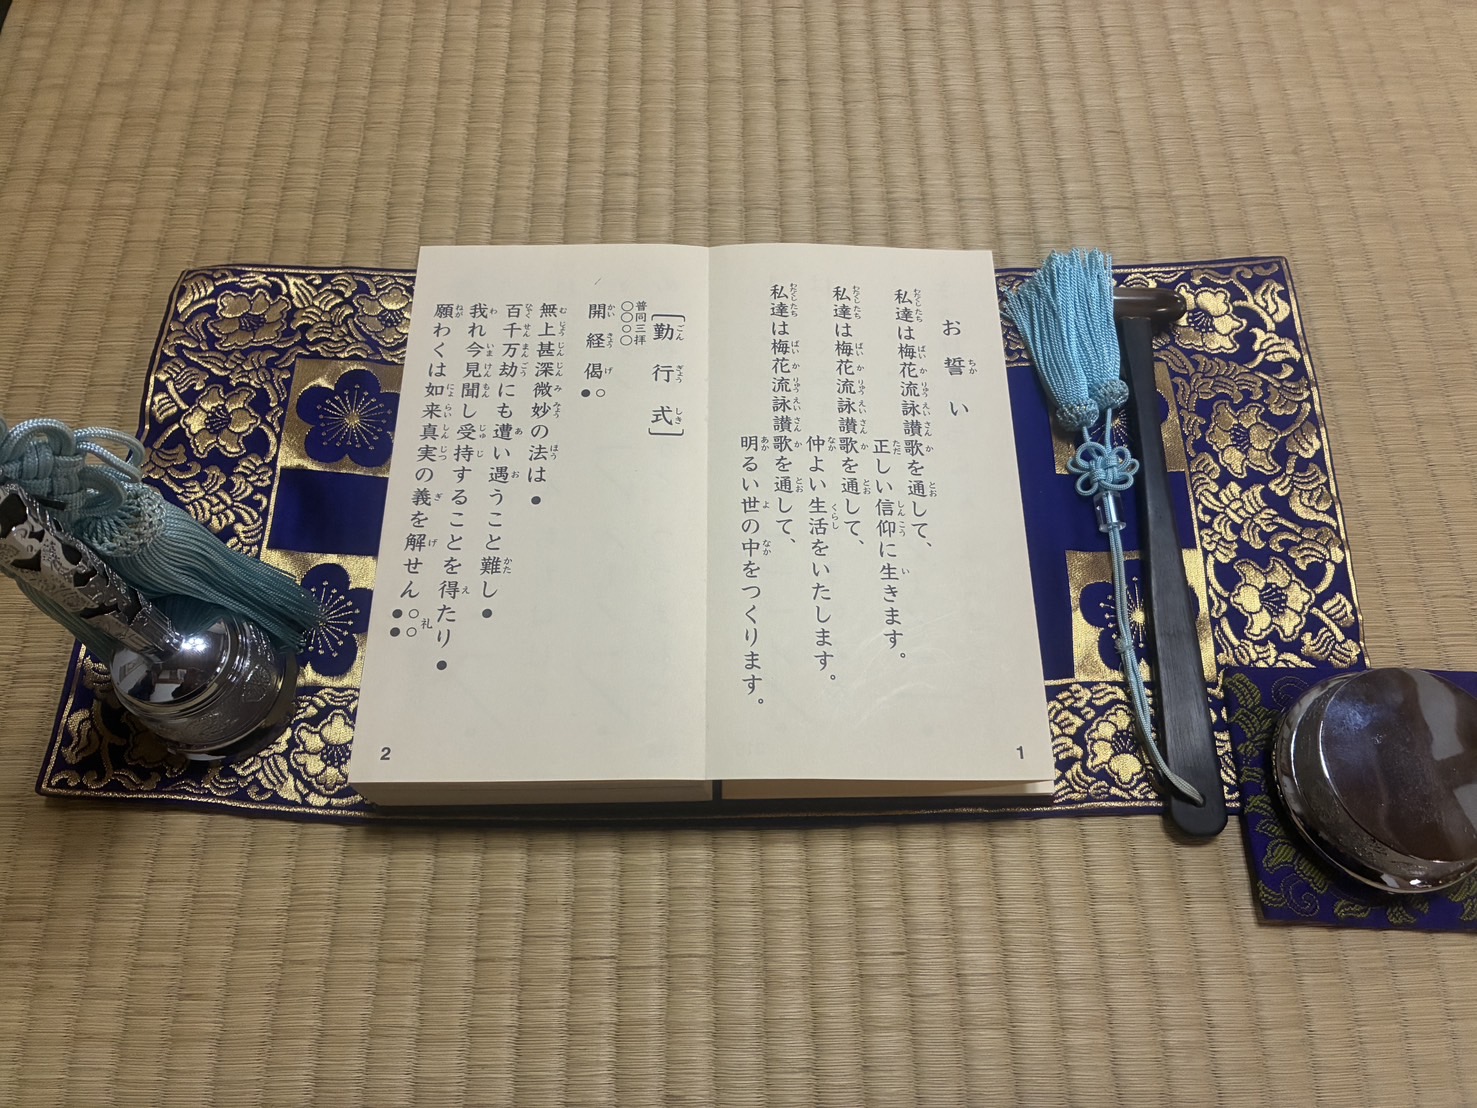 お誓い
私達は梅花流詠讃歌を通して、
正しい信仰に生きます。
私達は梅花流詠讃歌を通して、
仲よい生活をいたします。
私達は梅花流詠讃歌を通して、
明るい世の中をつくります。
1
〔勤行式〕
普同三拝
○○○○
開経偈○●
無上甚深微妙の法は●
百千万劫にも遭い遇うこと難し●
我れ今見聞し受持することを得たり●
願わくは如来真実の義を解せん○○礼●●
2